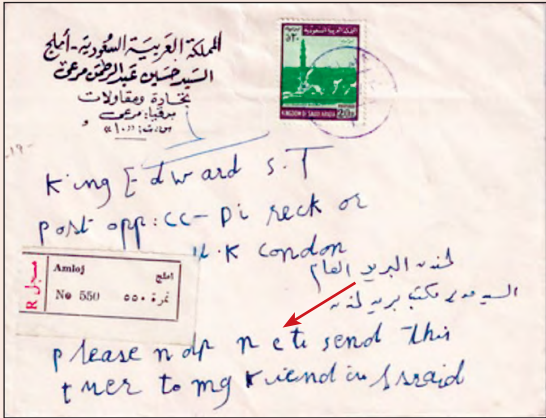 المملكة العربية السعودية - أملج
السيد حسين عبد الرحمن مرعي
تجارة ومقاولات
برقيا: مرعي
ص.ت: "١٠"
المملكة العربية السعودية
KINGDOM OF SAUDI ARABIA
King Edward S.T
post opp: CC- Di reck or
U.K London
لندن البريد العام
السيد مدير مكتب بريد لندن
مسجل R
Amloj املج
No 550 نمرة ٥٥٠
please send this
to my